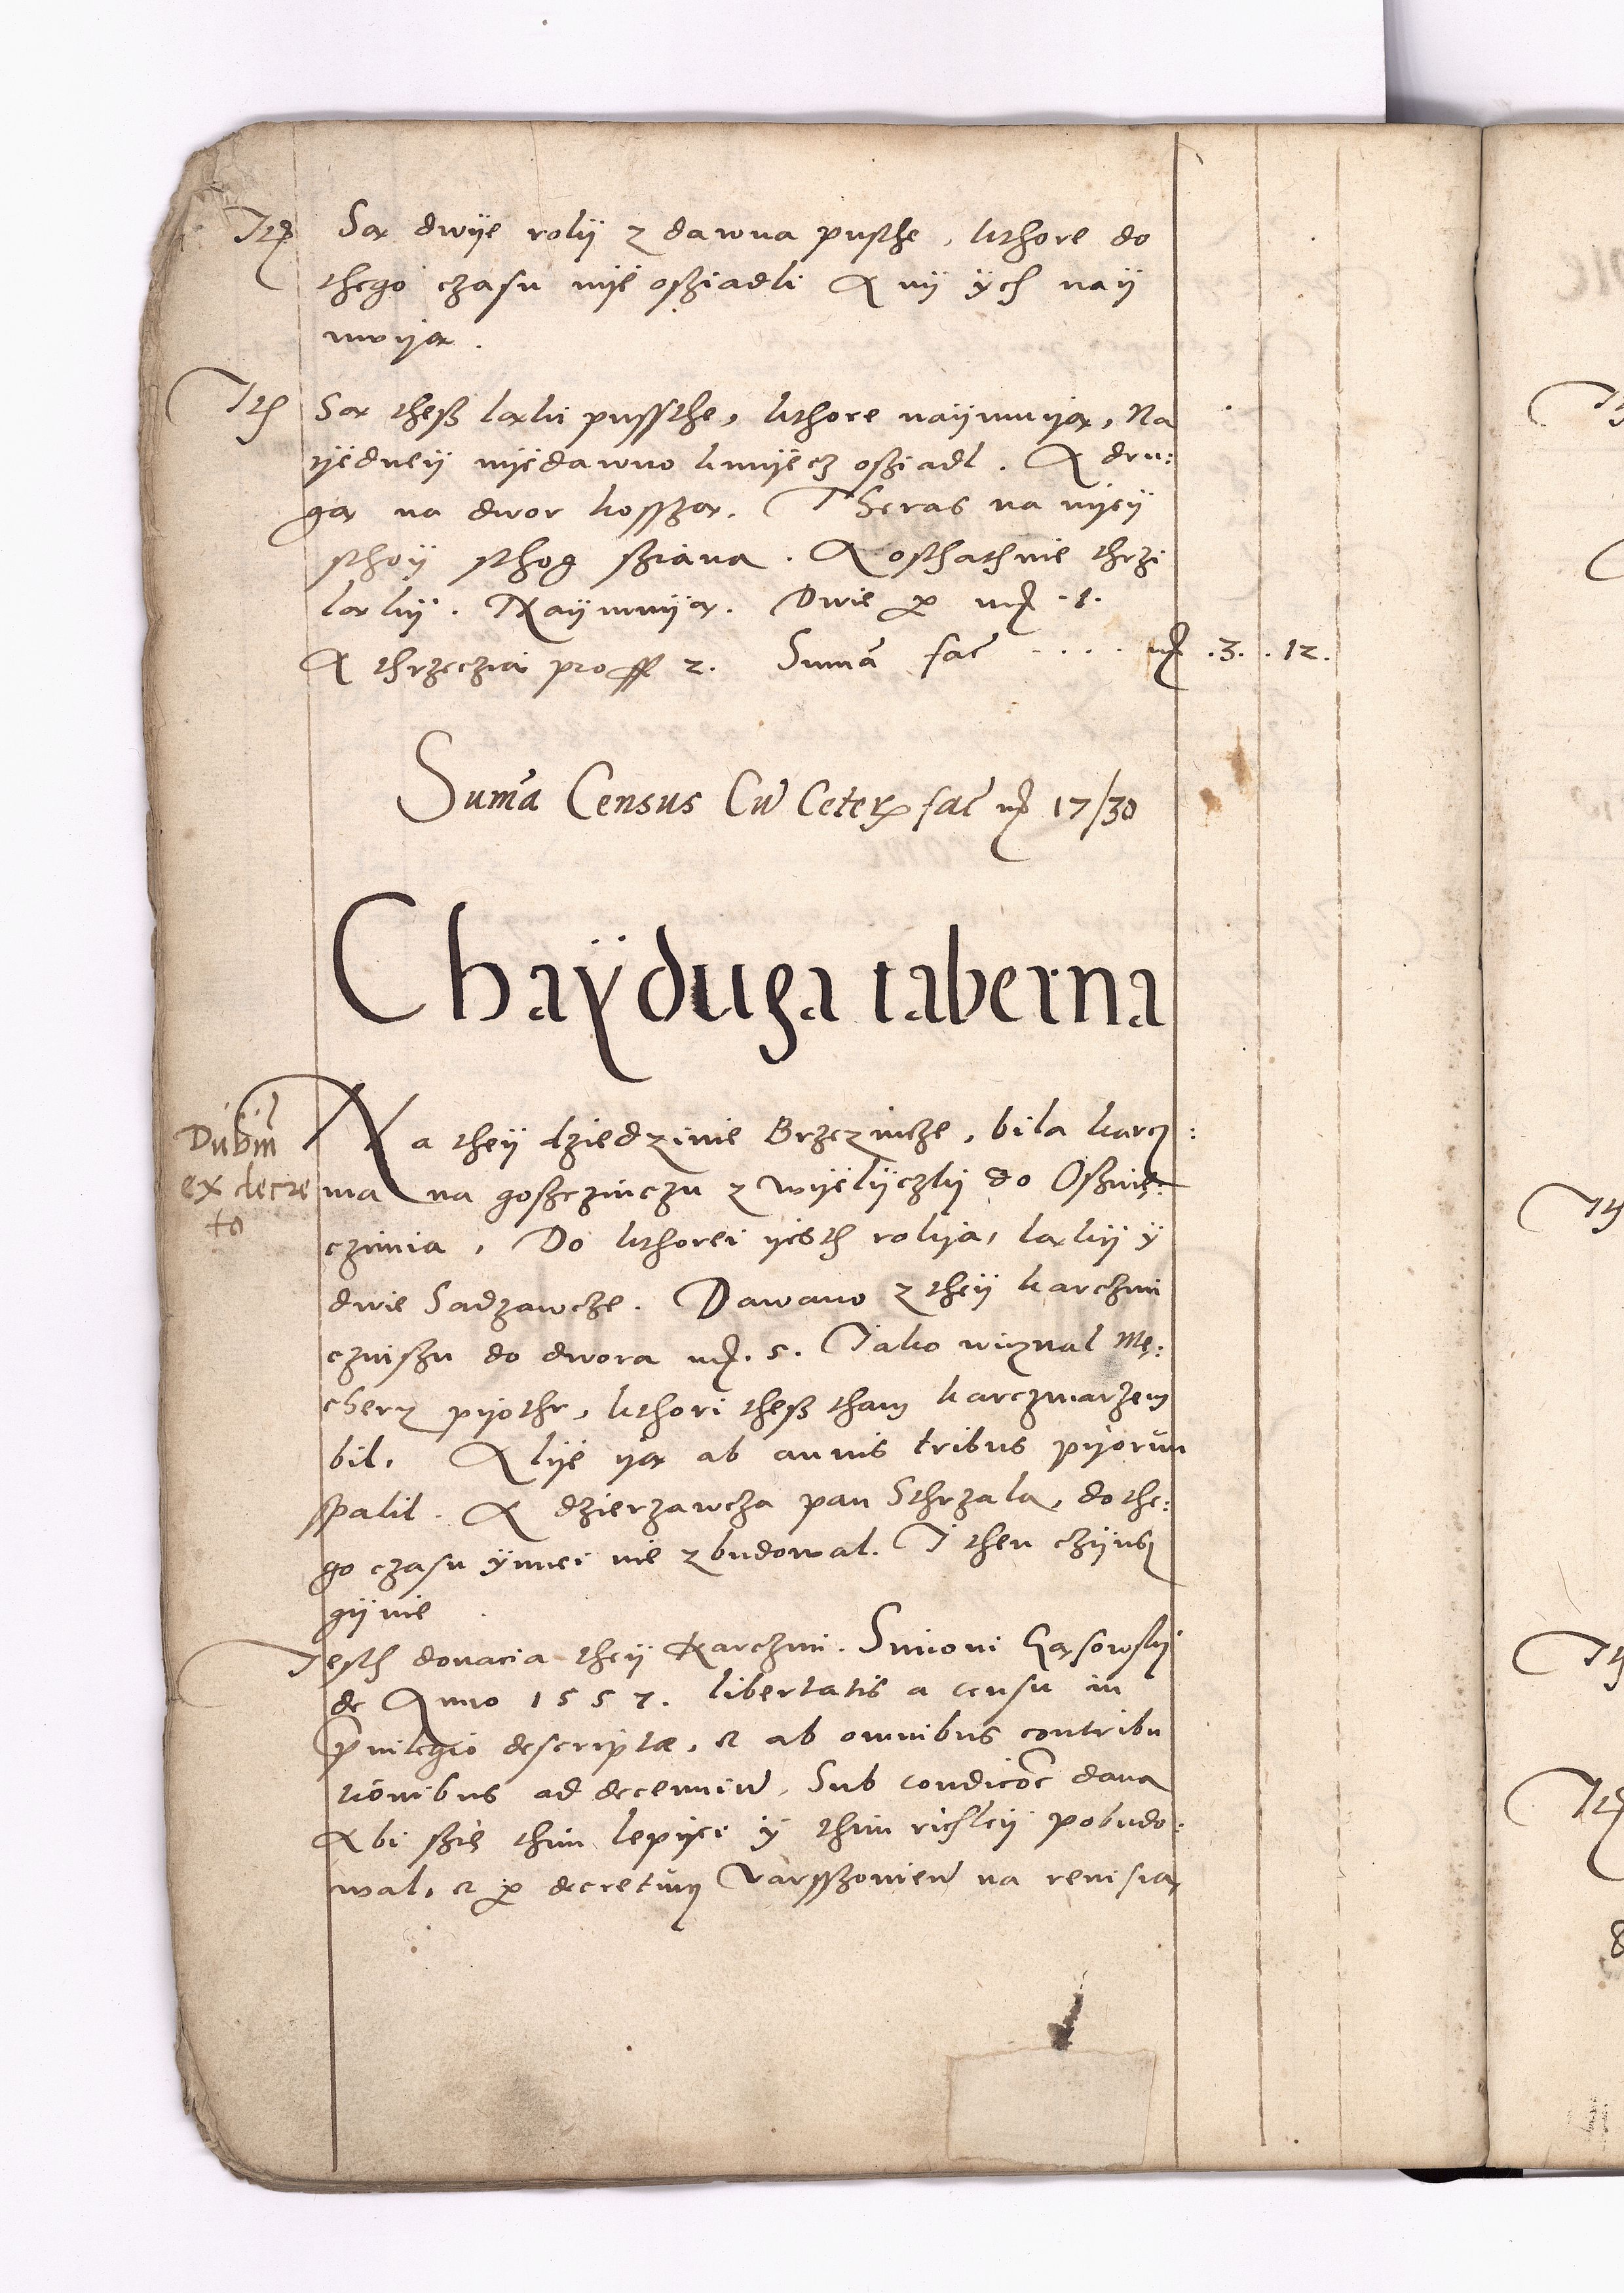 Itē Są dwije rolij z dawna pusthe, kthore do
thego czasu nije osziadli A nij ijch naij
mvija.
Itē Są thesz ląki pussthe, kthore naijmuiją, Na
ijednej nijedawno kmijecz osziadl. A dru:
gą na dwor kosszą. Theras na nijeij
sthoij sthog sziana. A osthathnie thrzi
ląkij. Naijmuiją. Dwie ꝑ mꝶ .1.
A thrzeczia pro ff 2. Sumā fac̄ . . . . mꝶ .3. . 12.
Sumā Census Cū Ceteꝶ fac̄ mꝶ 17/30
Chaÿduga taberna
Dubiū
ex decre
to
Na theij dziedzinie Brzezincze, bila karcz:
ma na goszczinczu z wijelijczkij do Oszwię:
czimia, Do kthorei ijesth rolija, ląkij ÿ
dwie Sadzawcze. Dawano z theij karczmi
czinszu do dwora mꝶ. 5. Iako wiznal Mę:
cherz pijothr, kthori thesz tham karczmarzem
bil, Alije iją ab annis tribus pijorun
spalil. A dzierzawcza pan Sthrzala, do the:
go czasu ÿnnei nie zbudowal. I then czijnsz
gijnie
Iesth donacia theij Karczmi. Simoni Gąsowskij
de Anno 1557. libertatis a censu in
pͥuilegio descriptæ, et ab omnibus contribu
tionibus ad decenniū, Sub condicōe dana
Abi szię thim lepijei ÿ thim richleij pobudo:
wal, et ꝑ decretum Varsszovien̄ na reuisią